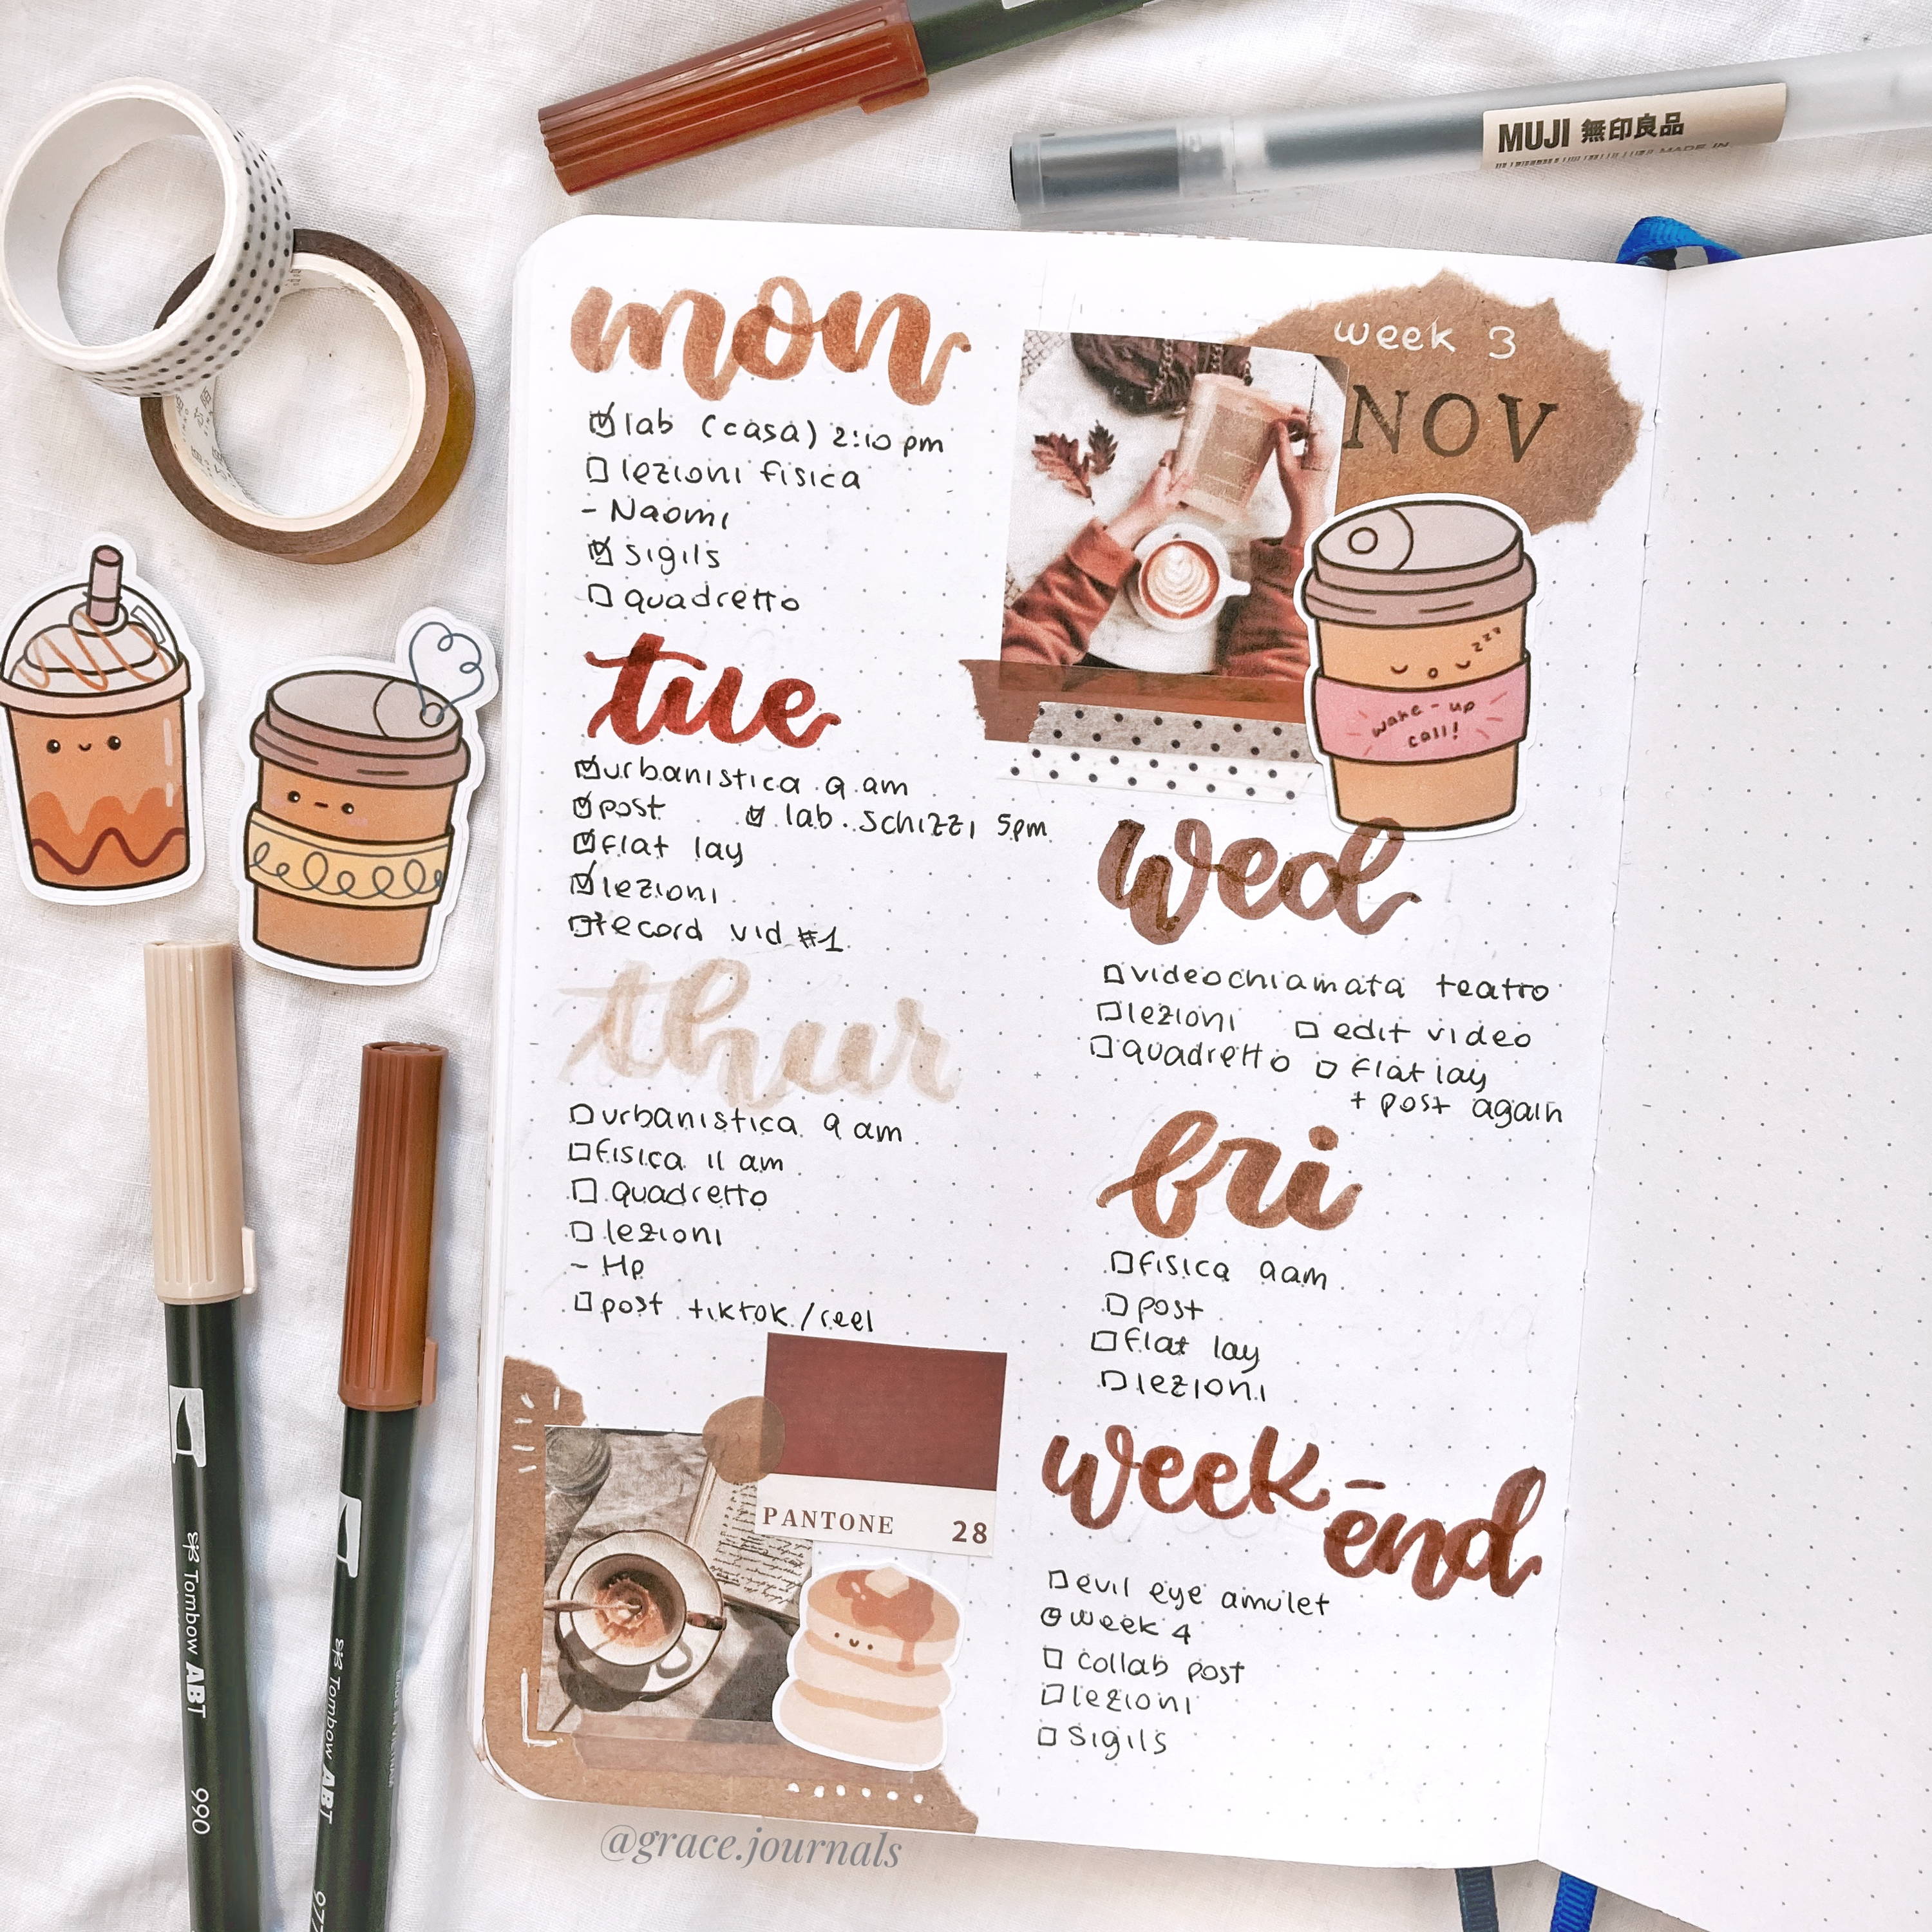 MUJI 無印良品
MADE IN
mon
lab (casa) 2:10 pm
lezioni fisica
- Naomi
sigils
quadretto
tue
urbanistica 9 am
post lab. schizzi 5pm
flat lay
lezioni
record vid #1
thur
urbanistica 9 am
fisica 11 am
quadretto
lezioni
- Hp
post tiktok/reel
PANTONE 28
week 3
NOV
zzz
wake-up
call!
wed
videochiamata teatro
lezioni edit video
quadretto flat lay
+ post again
fri
fisica 9am
post
flat lay
lezioni
week-
end
evil eye amulet
week 4
collab post
lezioni
sigils
Tombow ABT
990
Tombow ABT
977
@grace.journals